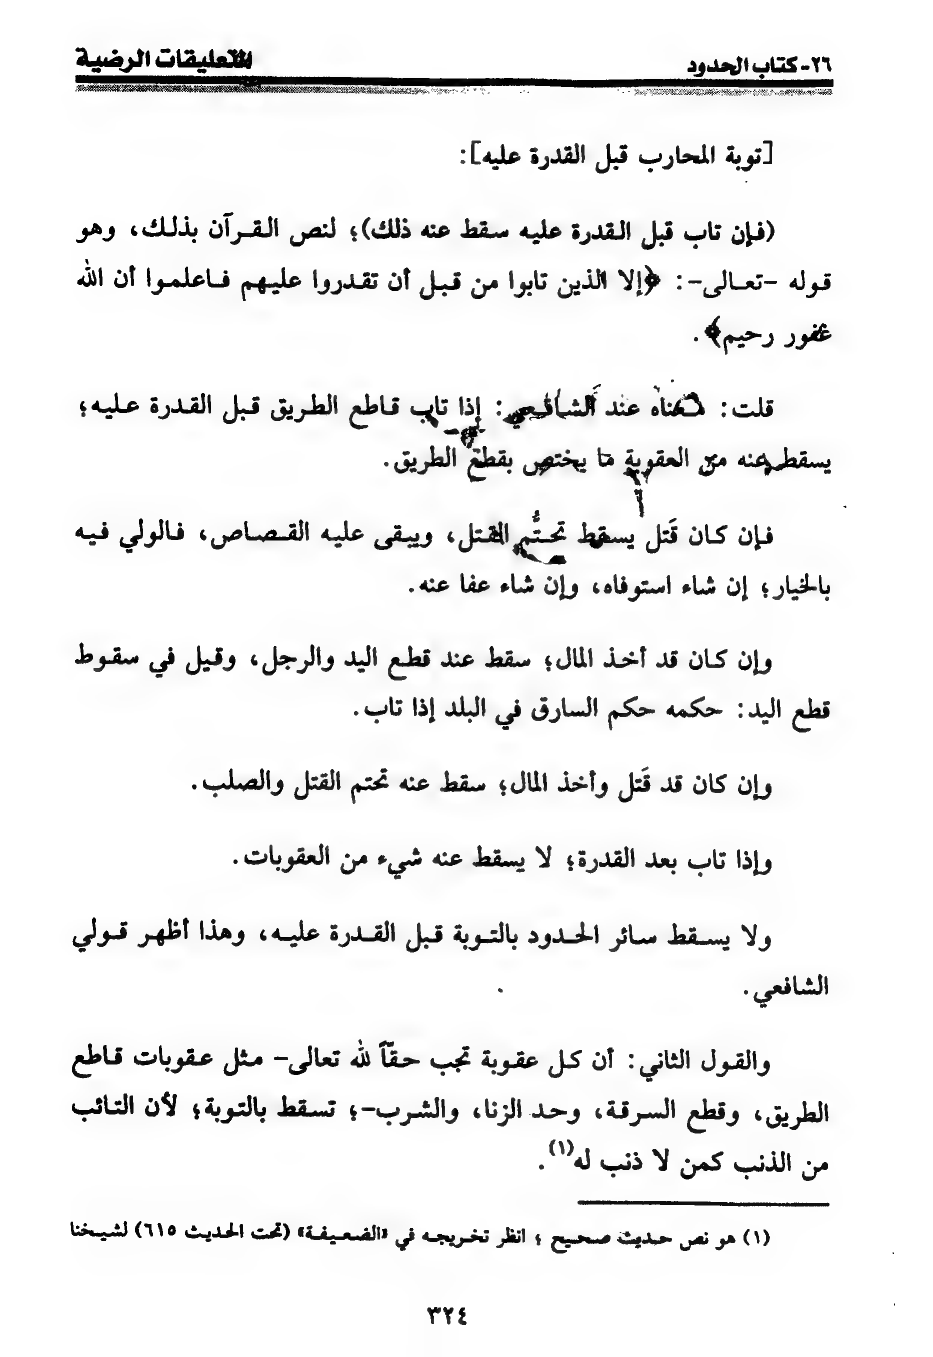 ٢٦- كتاب الحدود
التعليقات الرضية
[توبة المحارب قبل القدرة عليه]:
(فإن تاب قبل القدرة عليه سقط عنه ذلك)؛ لنص القرآن بذلك، وهو
قوله -تعالى-: ﴿إلا الذين تابوا من قبل أن تقدروا عليهم فاعلموا أن الله
غفور رحيم﴾.
قلت: معناه عند الشافعي: إذا تاب قاطع الطريق قبل القدرة عليه؛
يسقط عنه من العقوبة ما يختص بقطع الطريق.
فإن كان قَتل يسقط تحتُّم القتل، ويبقى عليه القصاص، فالولي فيه
بالخيار؛ إن شاء استوفاه، وإن شاء عفا عنه.
وإن كان قد أخذ المال؛ سقط عند قطع اليد والرجل، وقيل في سقوط
قطع اليد: حكمه حكم السارق في البلد إذا تاب.
وإن كان قد قَتل وأخذ المال؛ سقط عنه تحتم القتل والصلب.
وإذا تاب بعد القدرة؛ لا يسقط عنه شيء من العقوبات.
ولا يسقط سائر الحدود بالتوبة قبل القدرة عليه، وهذا أظهر قولي
الشافعي.
والقول الثاني: أن كل عقوبة تجب حقّاً لله تعالى- مثل عقوبات قاطع
الطريق، وقطع السرقة، وحد الزنا، والشرب-؛ تسقط بالتوبة؛ لأن التائب
من الذنب كمن لا ذنب له(١).
(١) هو نص حديث صحيح؛ انظر تخريجه في «الضعيفة» (تحت الحديث ٦١٥) لشيخنا
٣٢٤